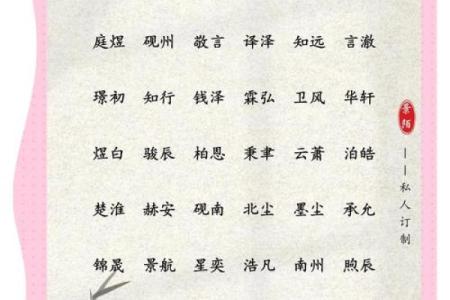 庭煜 砚州 敬言 译泽 知远 言澈
璟初 知行 钱泽 霖弘 卫风 华轩
煜白 骏辰 柏恩 秉聿 云萧 泊皓
楚淮 赫安 砚南 北尘 墨尘 承允
锦晟 景航 星奕 浩凡 南州 煦辰
景陌
——私人订制